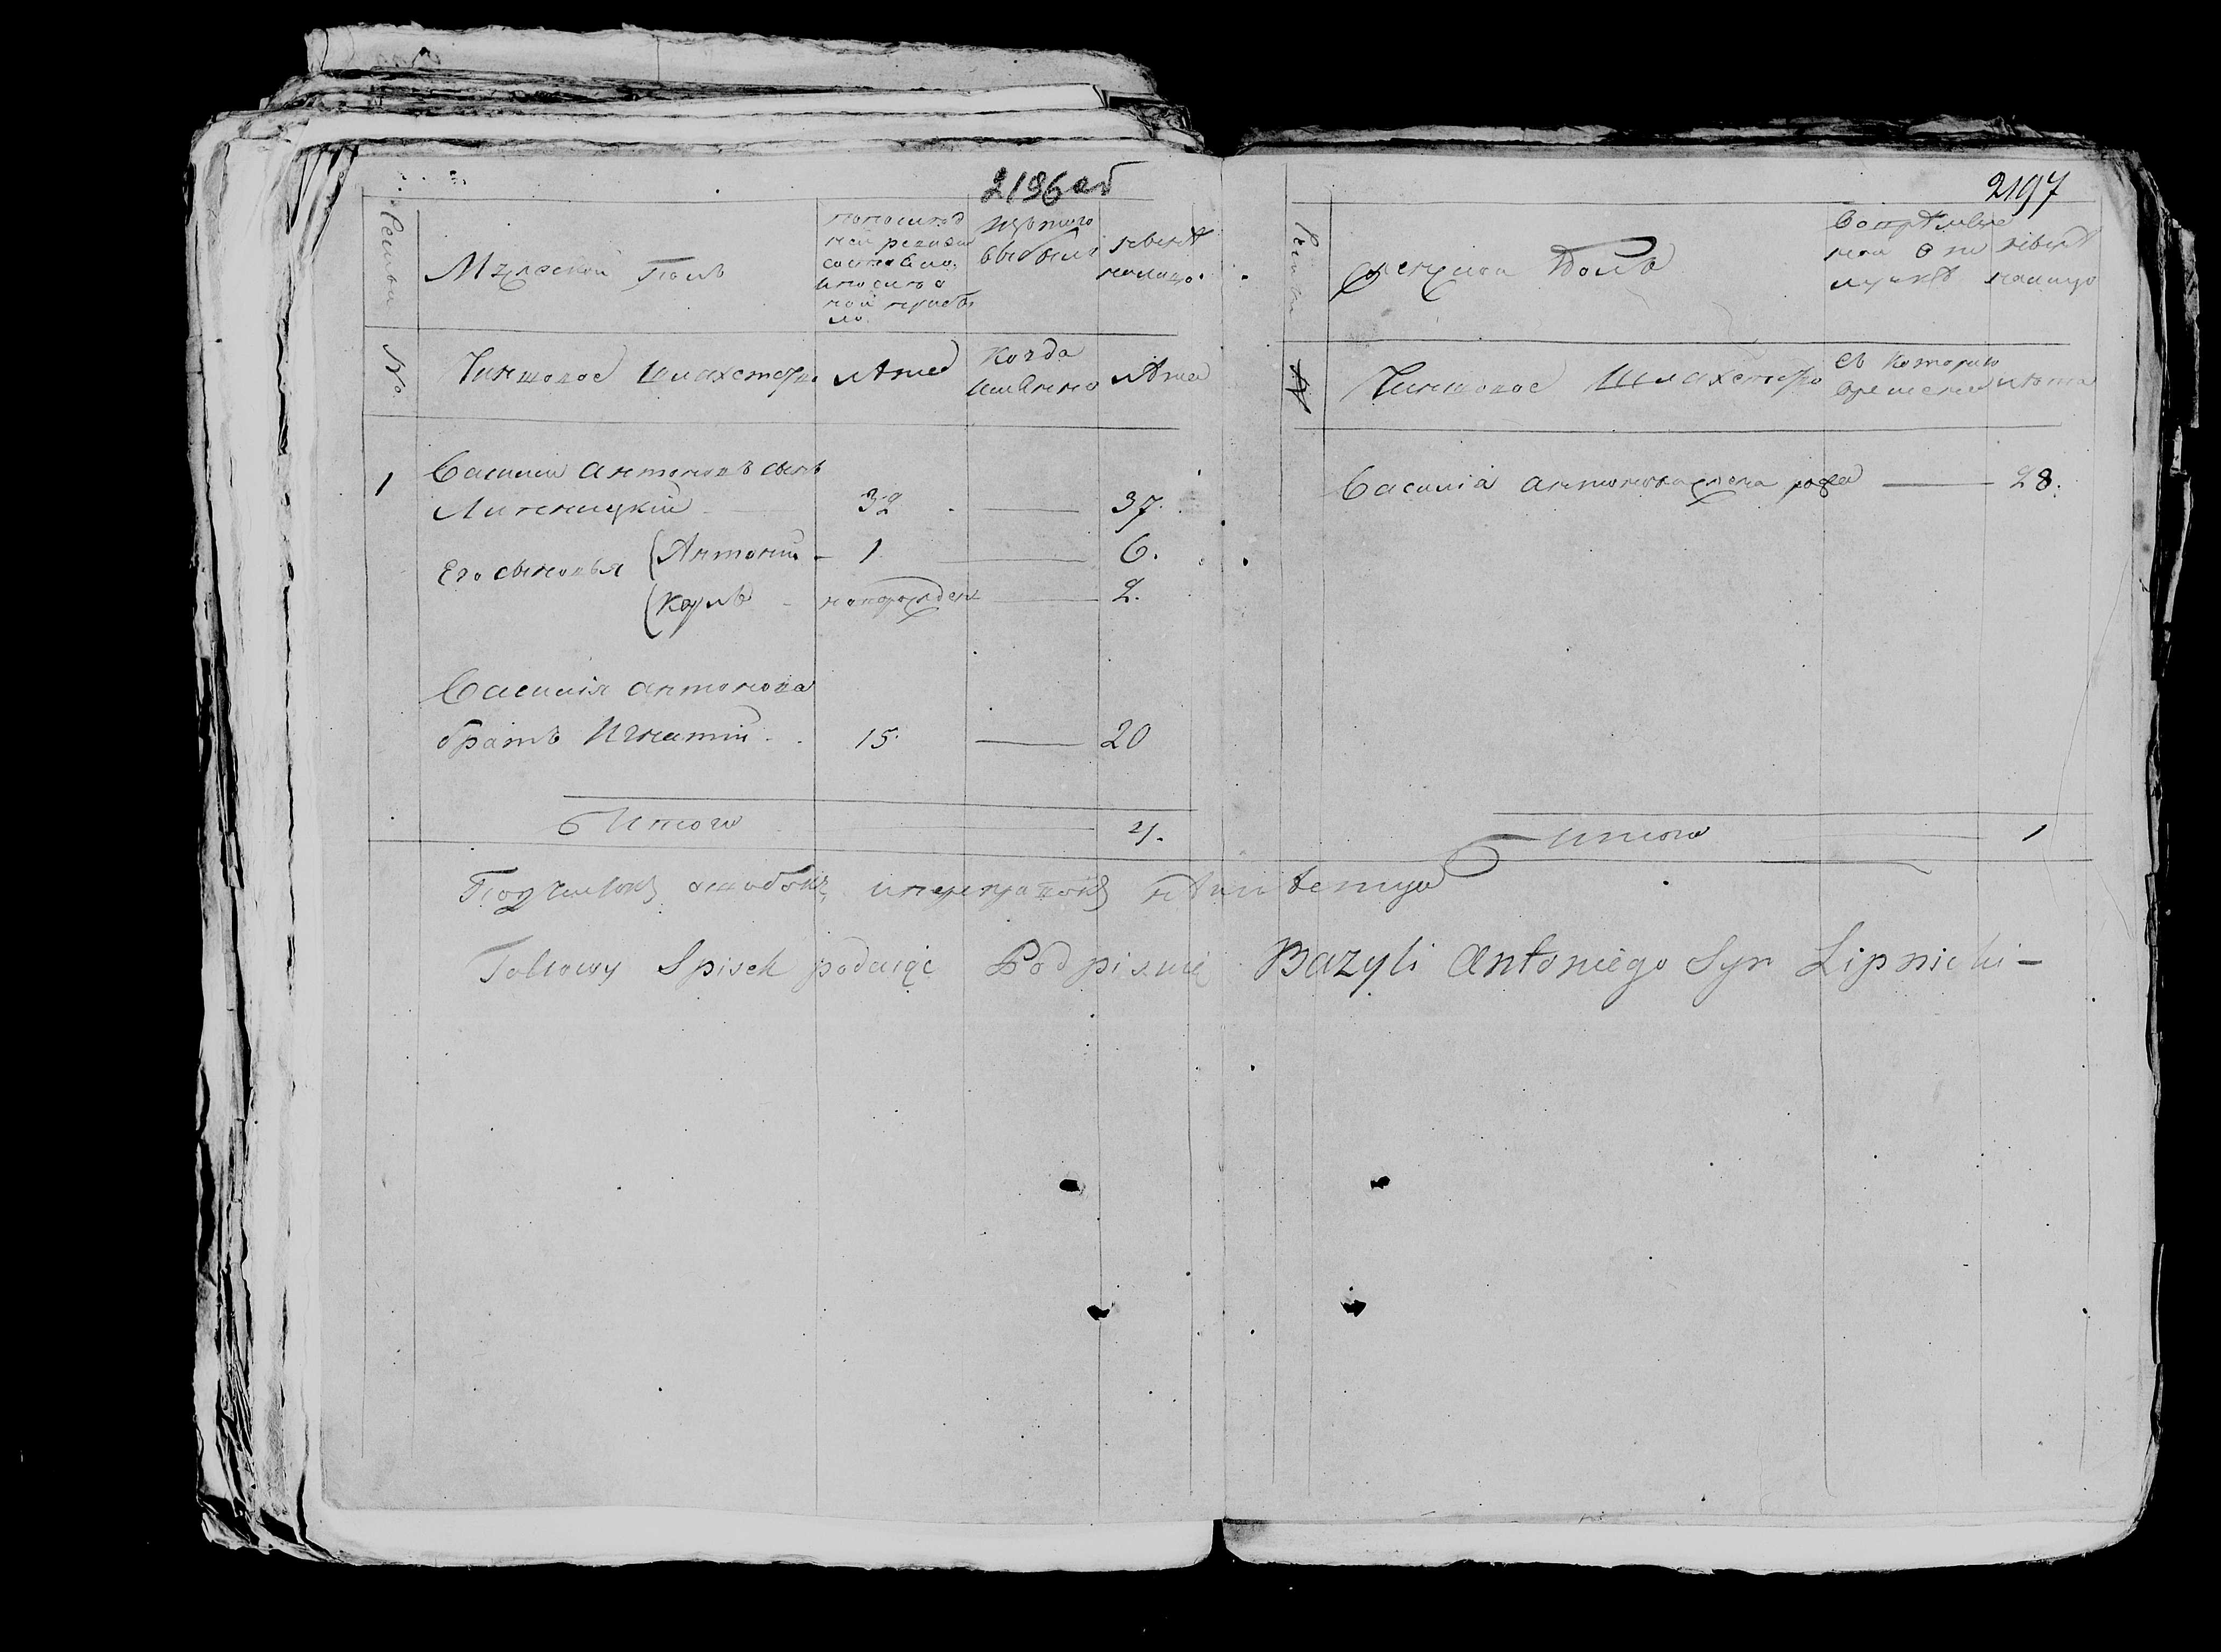 2196 об
Семьи
Мужеской полъ
по послед
ней ревизи
состояло
и после о
ной прибы
ло
изъ того
выбыло
ныне
налицо.
№
Чиншовое Шляхетство
лѣта
Когда
имянно
лѣта
1
Василий Антоновъ сынъ
Липницкий 32 37.
Его сыновья Антоний 1 6.
Карлъ новорожден 2.
Василия Антонова
братъ Игнатий 15 20
Итого 4.
2197
Семьи
Женской полъ
Во времен
ной отлучкѣ
ныне
налицо
№
Чиншовое Шляхетство
Съ которого
времени
лѣта
Василия Антонова жена 28.
Итого 1
Подчистокъ ошибокъ и переправокъ
Takowy Spisek podaiąc Podpisuię Bazyli Antoniego Syn Lipnicki –